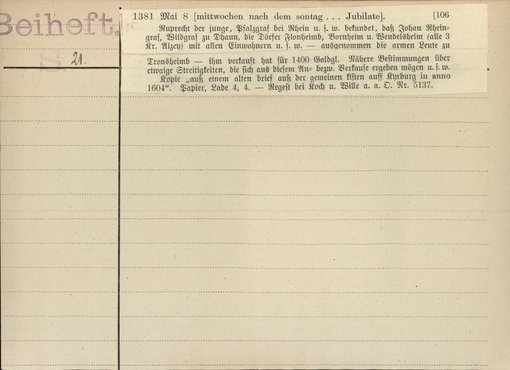 Beiheft
21.
1381 Mai 8 [mittwochen nach dem sontag ... Jubilate]. [106
Ruprecht der junge, Pfalzgraf bei Rhein u. s. w. bekundet, daß Johan Rhein-
graf, Wildgraf zu Dhaun, die Dörfer Flonheimb, Bornheim u. Wendelsheim (alle 3
Kr. Alzey) mit allen Einwohnern u. s. w. — ausgenommen die armen Leute zu
Tronsheimb — ihm verkauft hat für 1400 Goldgl. Nähere Bestimmungen über
etwaige Streitigkeiten, die sich aus diesem An- bezw. Verkaufe ergeben mögen u. s. w.
Kopie „auß einem alten brief auß der gemeinen kisten auff Kyrburg in anno
1604“. Papier, Lade 4, 4. — Regest bei Koch u. Wille a. a. O. Nr. 5137.